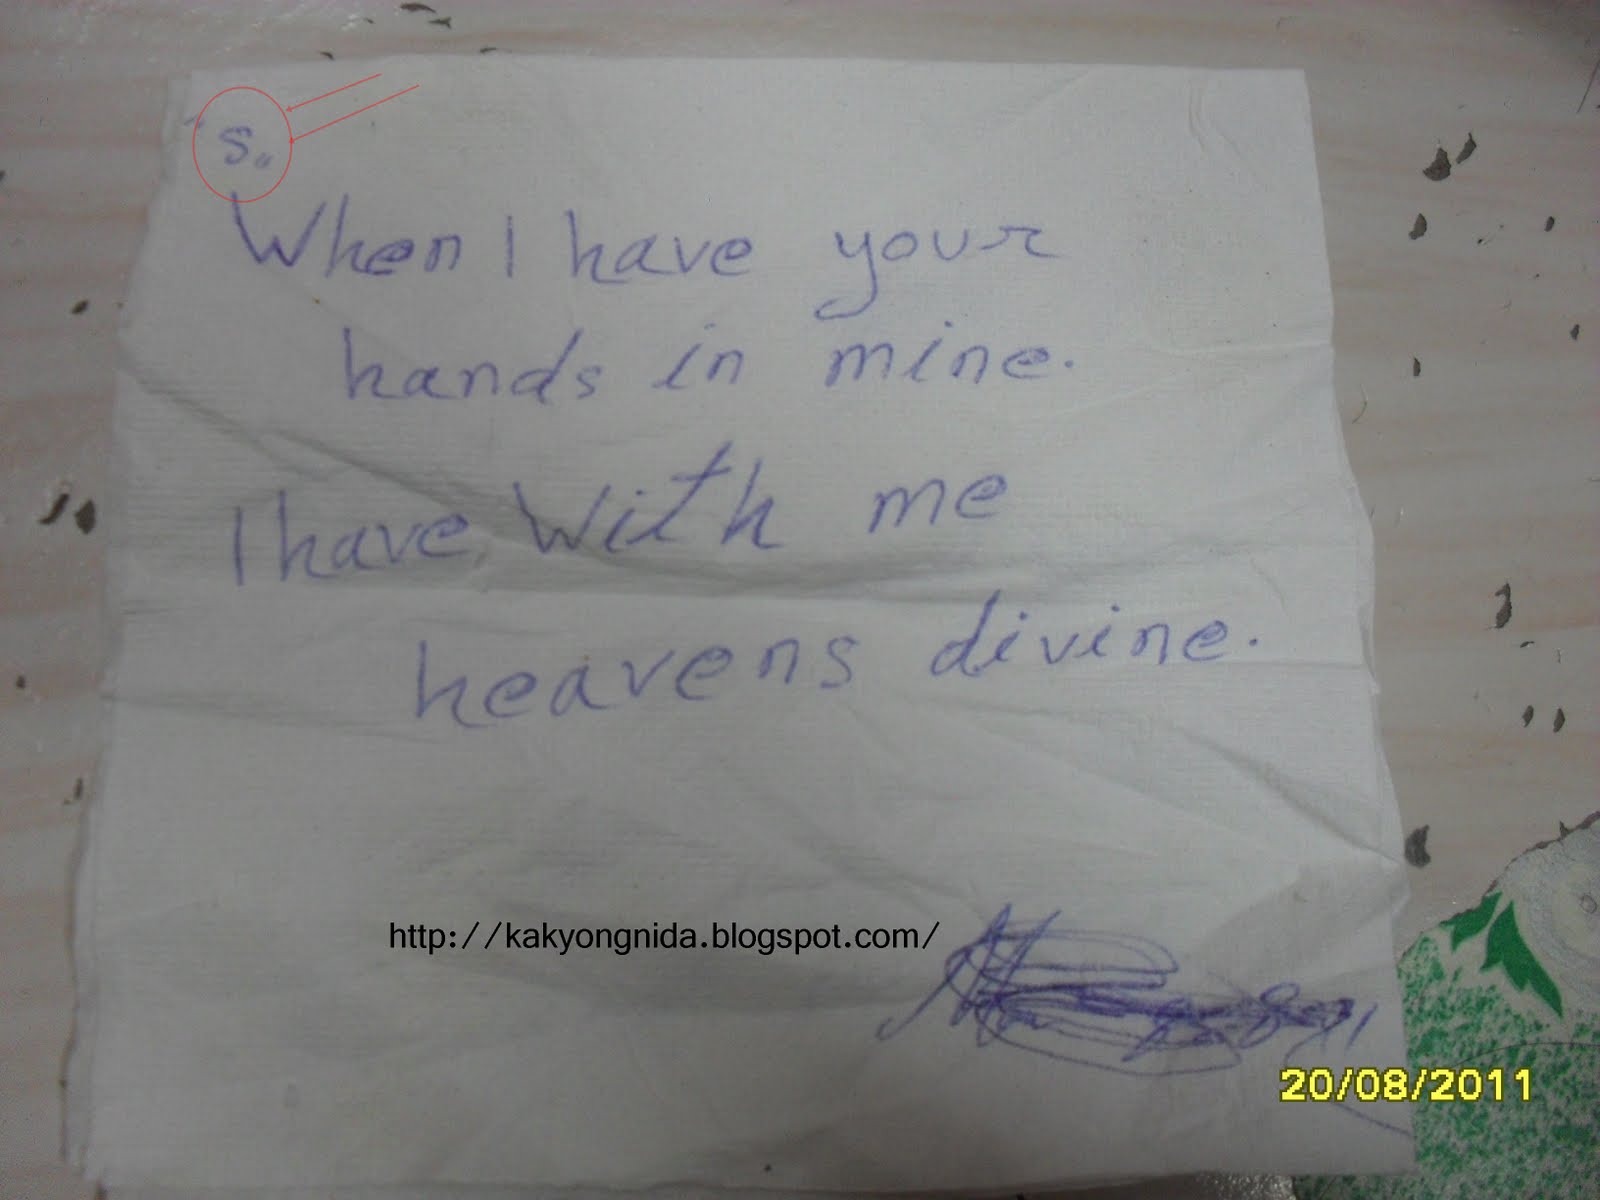 s.,
When I have your
hands in mine.
I have with me
heavens divine.
http://kakyongnida.blogspot.com/
20/08/2011